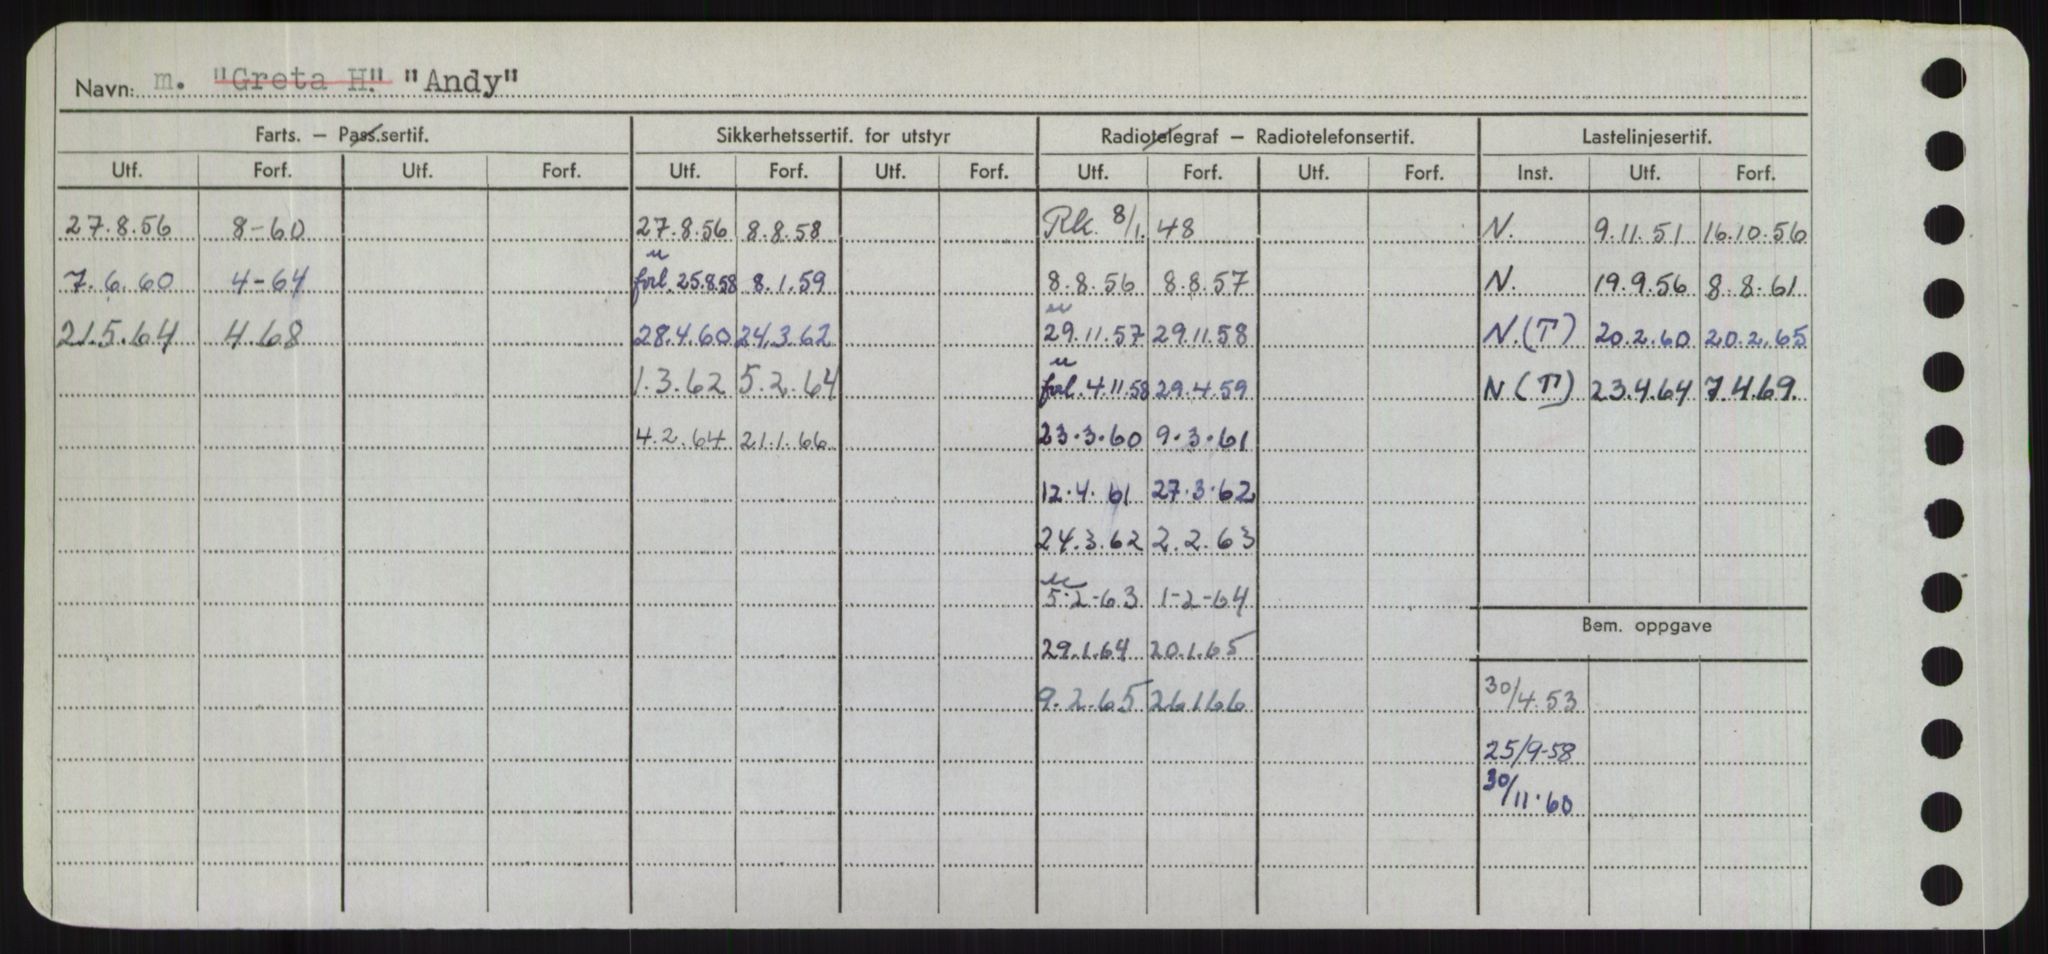 Navn: m. "Greta H." "Andy"
Farts. — Pass.sertif. Sikkerhetssertif. for utstyr Radiotelegraf — Radiotelefonsertif. Lastelinjesertif.
Utf. Forf. Utf. Forf. Utf. Forf. Utf. Forf. Utf. Forf. Utf. Forf. Inst. Utf. Forf.
27.8.56 8-60 27.8.56 8.8.58 Rk. 8/1. 48 N. 9.11.51 16.10.56
7.6.60 4-64 forl. 25.8.58 8.1.59 8.8.56 8.8.57 N. 19.9.56 8.8.61
21.5.64 4.68 28.4.60 24.3.62 29.11.57 29.11.58 N.(T) 20.2.60 20.2.65
1.3.62 5.2.64 forl. 4.11.58 29.4.59 N(T) 23.4.64 7.4.69.
4.2.64 21.1.66 23.3.60 9.3.61
12.4.61 27.3.62
24.3.62 2.2.63
5-2-63 1-2-64
Bem. oppgave
29.1.64 20.1.65
9.2.65 26.1.66 30/4.53
25/9-58
30/11.60